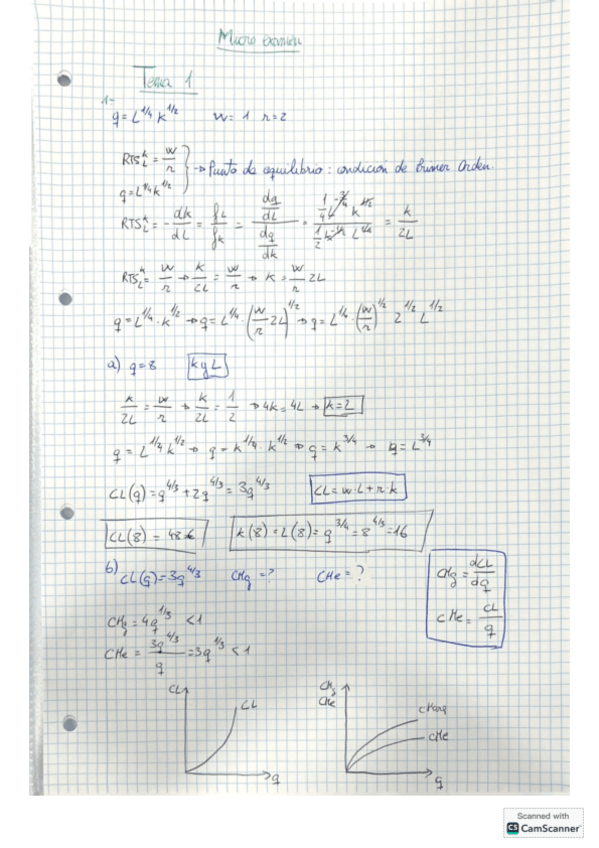 Micro examen
Tema 1
1=
q = L^1/4 k^1/2   w = 1   r = 2
RTS^k_L = w/r
q = L^1/4 k^1/2
→ Punto de equilibrio: condición de Primer Orden.
RTS^k_L = - dk/dL = fL/fk = (dq/dL)/(dq/dk) = (1/4 L^-3/4 k^1/2)/(1/2 k^-1/2 L^1/4) = k/2L
RTS^k_L = w/r → k/2L = w/r → k = w/r 2L
q = L^1/4 · k^1/2 → q = L^1/4 · (w/r 2L)^1/2 → q = L^1/4 · (w/r)^1/2 2^1/2 L^1/2
a) q = 8   k y L
k/2L = w/r → k/2L = 1/2 → 4k = 4L → k = L
q = L^1/4 k^1/2 → q = k^1/4 · k^1/2 → q = k^3/4 → q = L^3/4
CL(q) = q^4/3 + 2q^4/3 = 3q^4/3   CL = w·L + r·k
CL(8) = 48   k(8) = L(8) = q^3/4 = 8^4/3 = 16
b) CL(q) = 3q^4/3   CMg = ?   CMe = ?
CMg = dCL/dq
CMe = CL/q
CMg = 4q^1/3 < 1
CMe = 3q^4/3 / q = 3q^1/3 < 1
CL
CL
q
CMg
CMe
CMarg
CMe
q
Scanned with
CS CamScanner